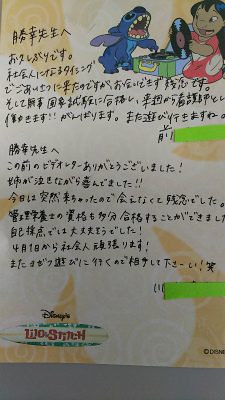 勝幸先生へ
お久しぶりです。
社会人になるタイミング
でごあいさつに来たのですが、お会いできず残念です。
そして無事国家試験に合格し、来週から看護師として
働きます!!がんばります。また遊び行きますね。
勝幸先生へ
この前のビデオレターありがとうございました!
姉が泣きながら喜んでました!!
今日は突然来ちゃったので会えなくて残念でした。
管理栄養士の資格も多分合格することができました
自己採点では大丈夫そうでした!
4月1日から社会人頑張ります!
またヨゼフ遊びに行くので相手して下さーい!笑
Disney's
LILO & STITCH
©DISNEY